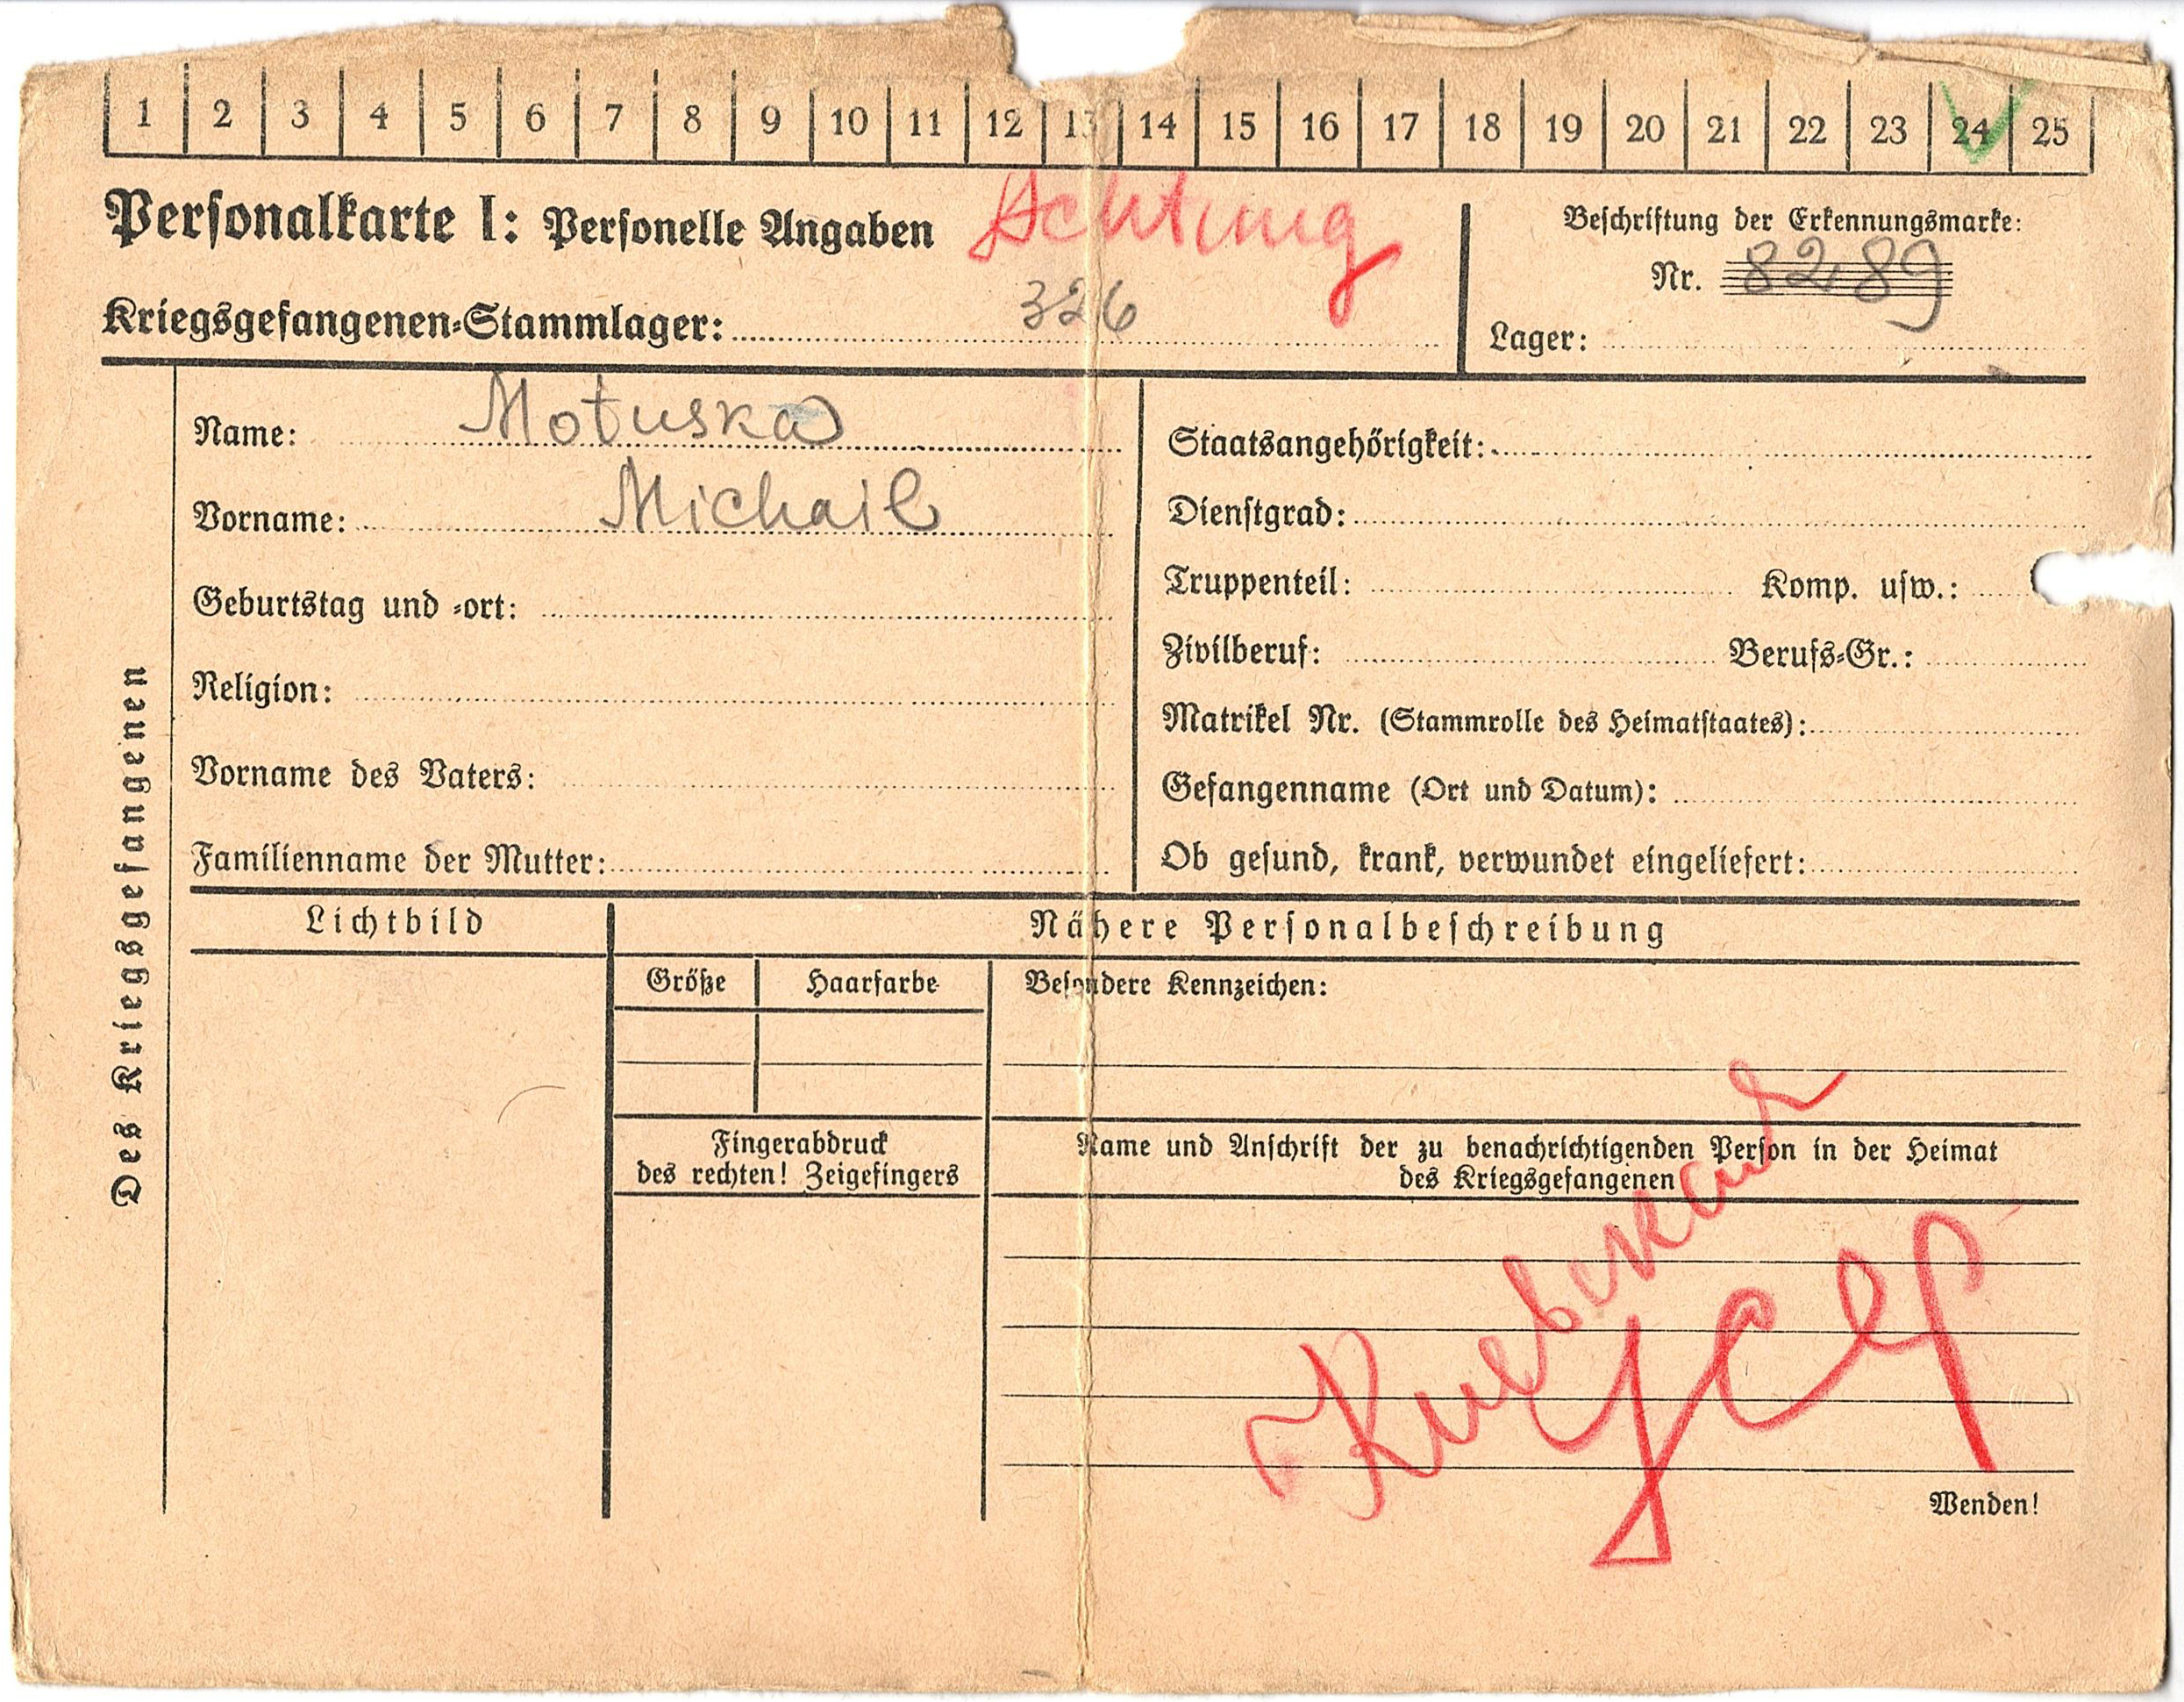 1 2 3 4 5 6 7 8 9 10 11 12 13 14 15 16 17 18 19 20 21 22 23 24 25
Personalkarte I: Personelle Angaben
Achtung
Kriegsgefangenen-Stammlager: 326
Beschriftung der Erkennungsmarke:
Nr. 8289
Lager:
Des Kriegsgefangenen
Name: Motuska
Vorname: Michail
Geburtstag und -ort:
Religion:
Vorname des Vaters:
Familienname der Mutter:
Staatsangehörigkeit:
Dienstgrad:
Truppenteil: Komp. usw.:
Zivilberuf: Berufs-Gr.:
Matrikel Nr. (Stammrolle des Heimatstaates):
Gefangenname (Ort und Datum):
Ob gesund, krank, verwundet eingeliefert:
Lichtbild
Nähere Personalbeschreibung
Größe Haarfarbe
Besondere Kennzeichen:
Fingerabdruck
des rechten! Zeigefingers
Name und Anschrift der zu benachrichtigenden Person in der Heimat
des Kriegsgefangenen
Wenden!